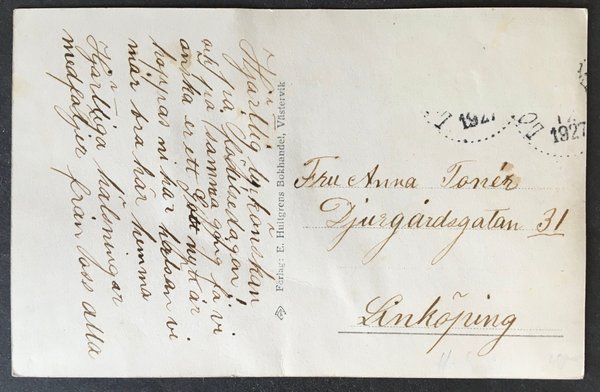 Hjärtlig lyckönskan
på Födelsedagen!
och på samma gång få vi
önska er ett Gott nytt år
hoppas ni har hälsan vi
mår bra här hemma
Hjärtliga hälsningar
medföljer från oss alla
Förlag: E. Hultgrens Bokhandel, Västervik
1927
1927
Fru Anna Tonér
Djurgårdsgatan 31
Linköping